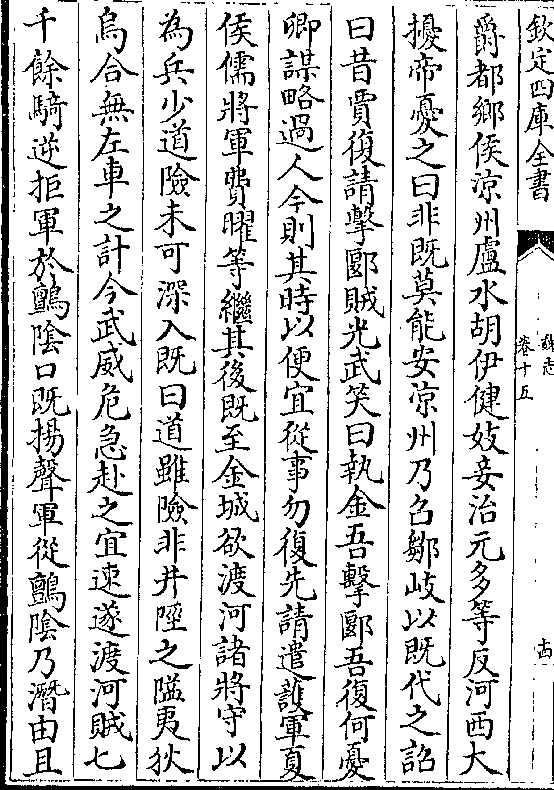 欽定四庫全書
魏志
卷十五
十四
爵都鄉侯涼州盧水胡伊健妓妾治元多等反河西大
擾帝憂之曰非既莫能安涼州乃召鄒岐以既代之詔
曰昔賈復請擊郾賊光武笑曰執金吾擊郾吾復何憂
卿謀略過人今則其時以便宜從事勿復先請遣護軍夏
侯儒將軍費曜等繼其後既至金城欲渡河諸將守以
為兵少道險未可深入既曰道雖險非井陘之隘夷狄
烏合無左車之計今武威危急赴之宜速遂渡河賊七
千餘騎逆拒軍於鸇陰口既揚聲軍從鸇陰乃潛由且